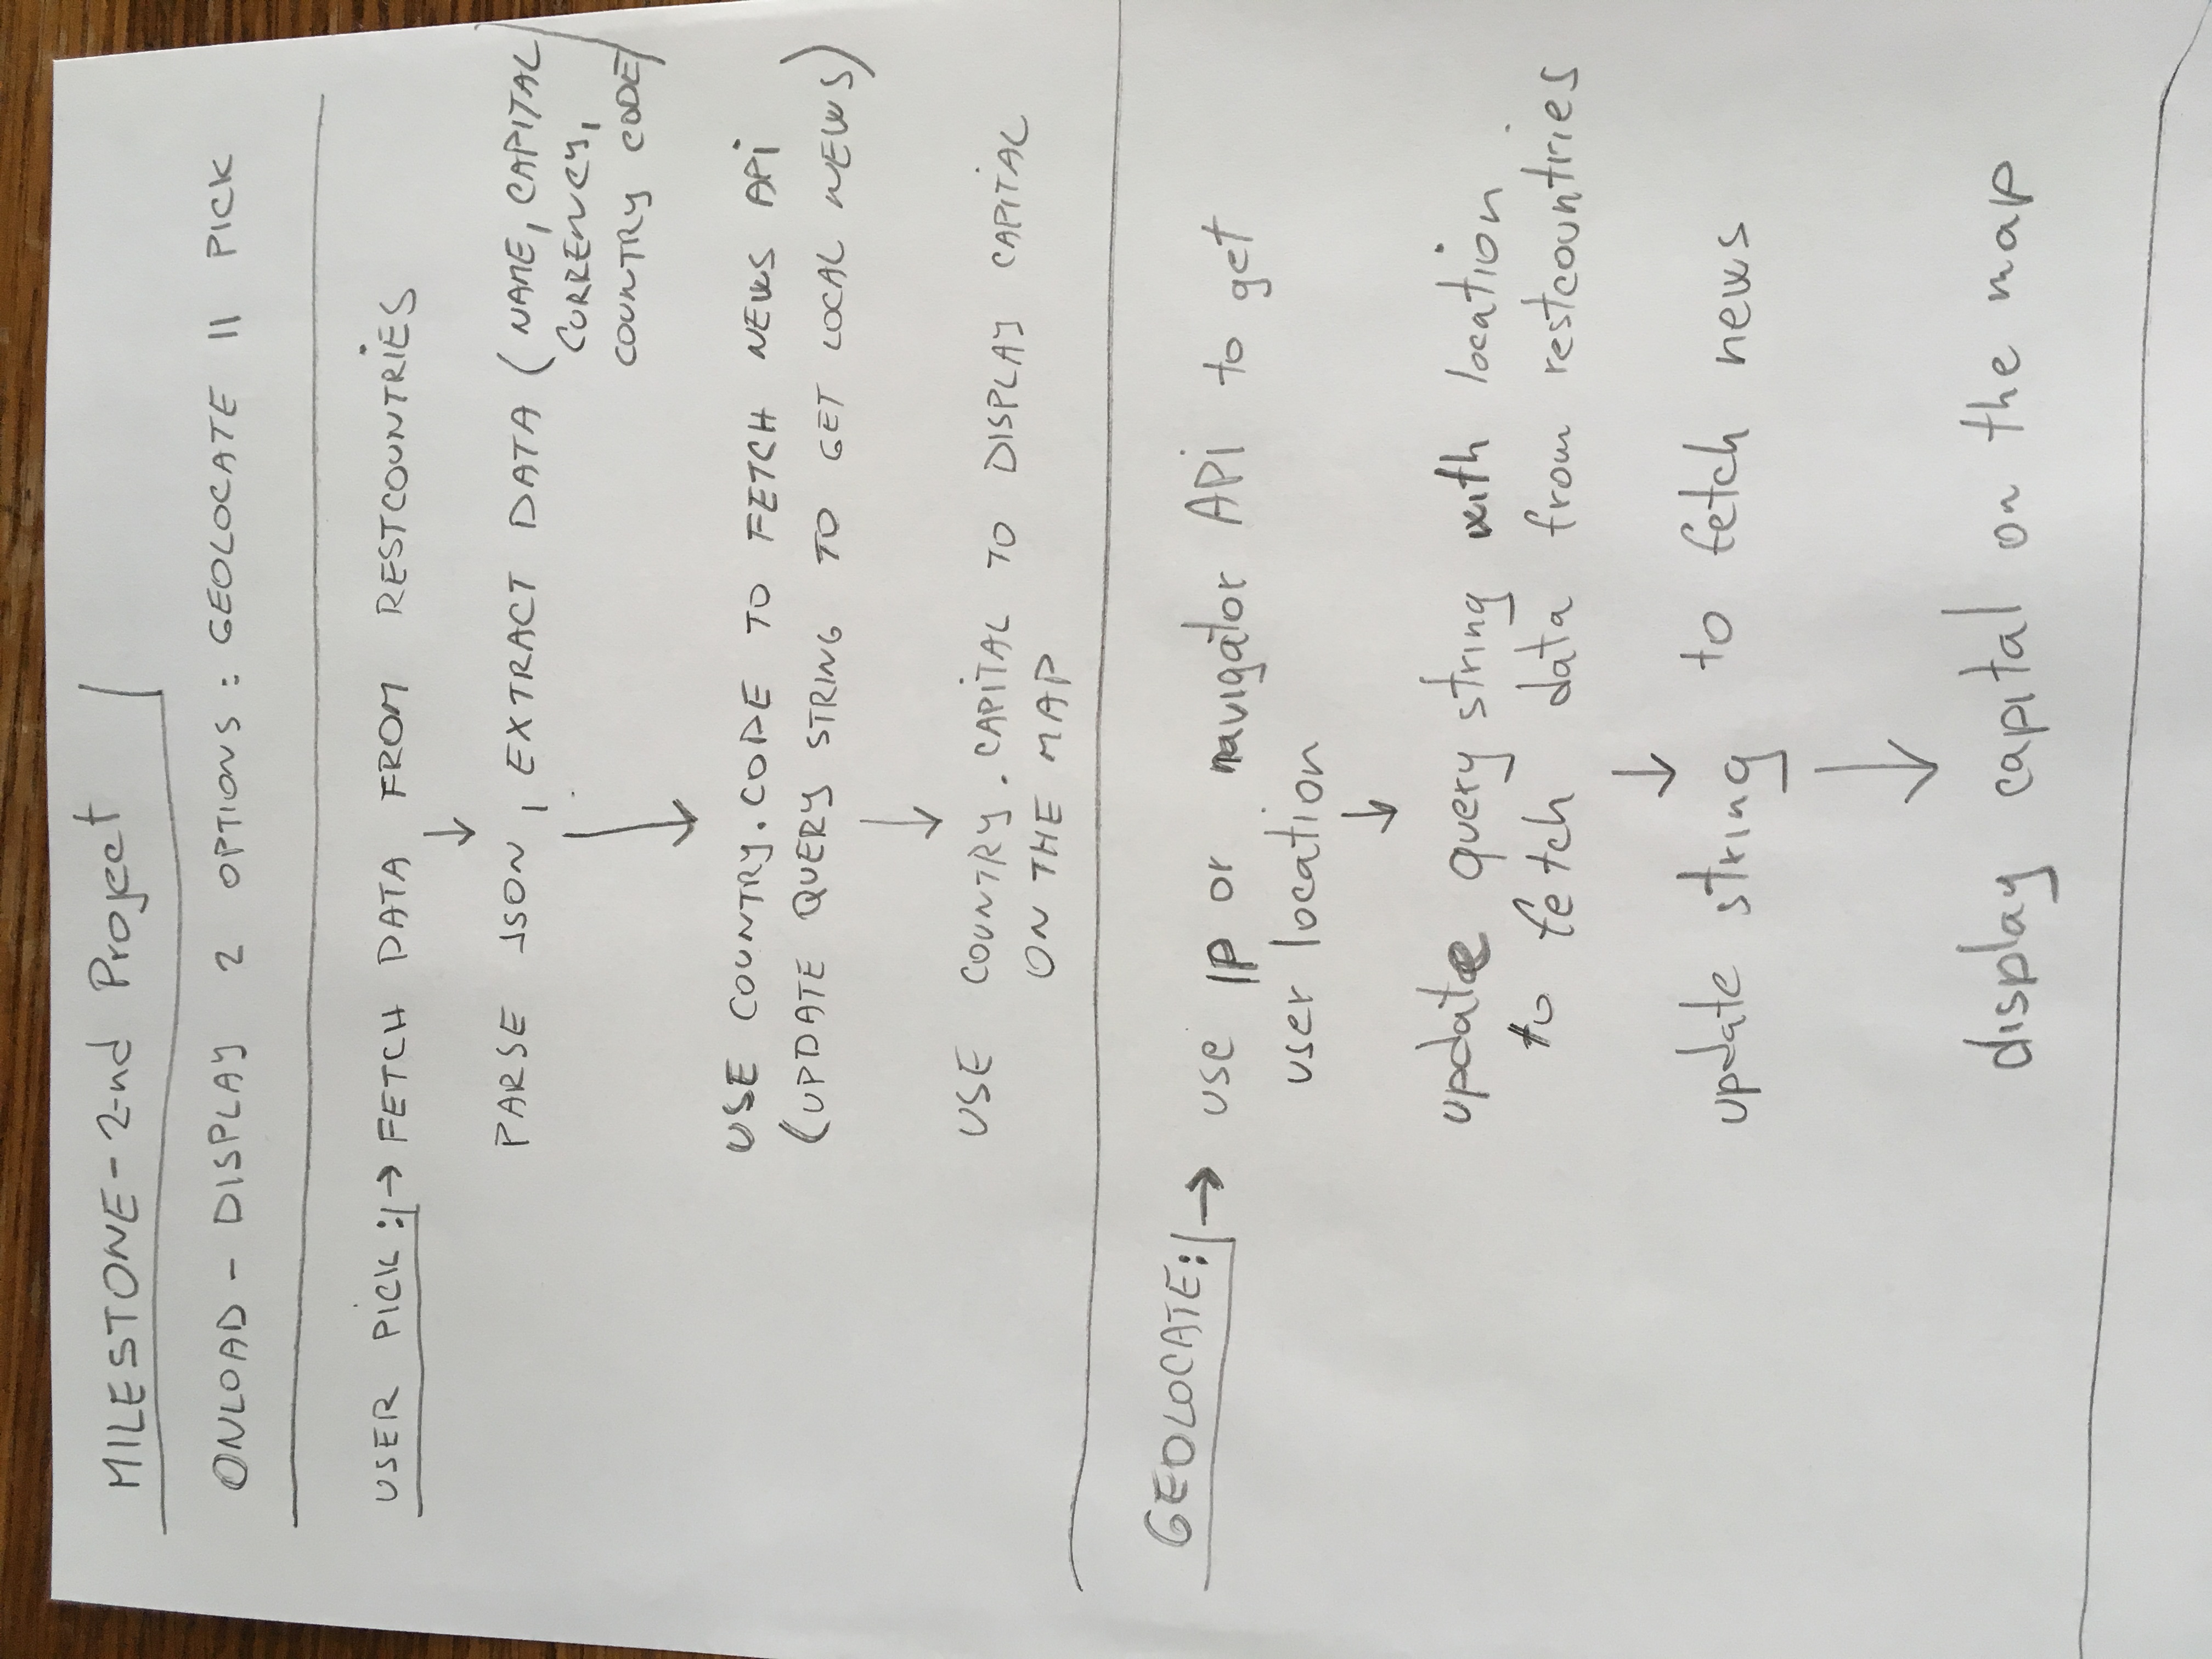 MILESTONE - 2-nd Project
ONLOAD - DISPLAY 2 OPTIONS : GEOLOCATE || PICK
USER PICK : → FETCH DATA FROM RESTCOUNTRIES
↓
PARSE JSON, EXTRACT DATA (NAME, CAPITAL
CURRENCY,
COUNTRY CODE)
↓
USE COUNTRY.CODE TO FETCH NEWS API
(UPDATE QUERY STRING TO GET LOCAL NEWS)
↓
USE COUNTRY.CAPITAL TO DISPLAY CAPITAL
ON THE MAP
GEOLOCATE: → use IP or navigator API to get
user location
↓
update query string with location
to fetch data from restcountries
↓
update string to fetch news
↓
display capital on the map